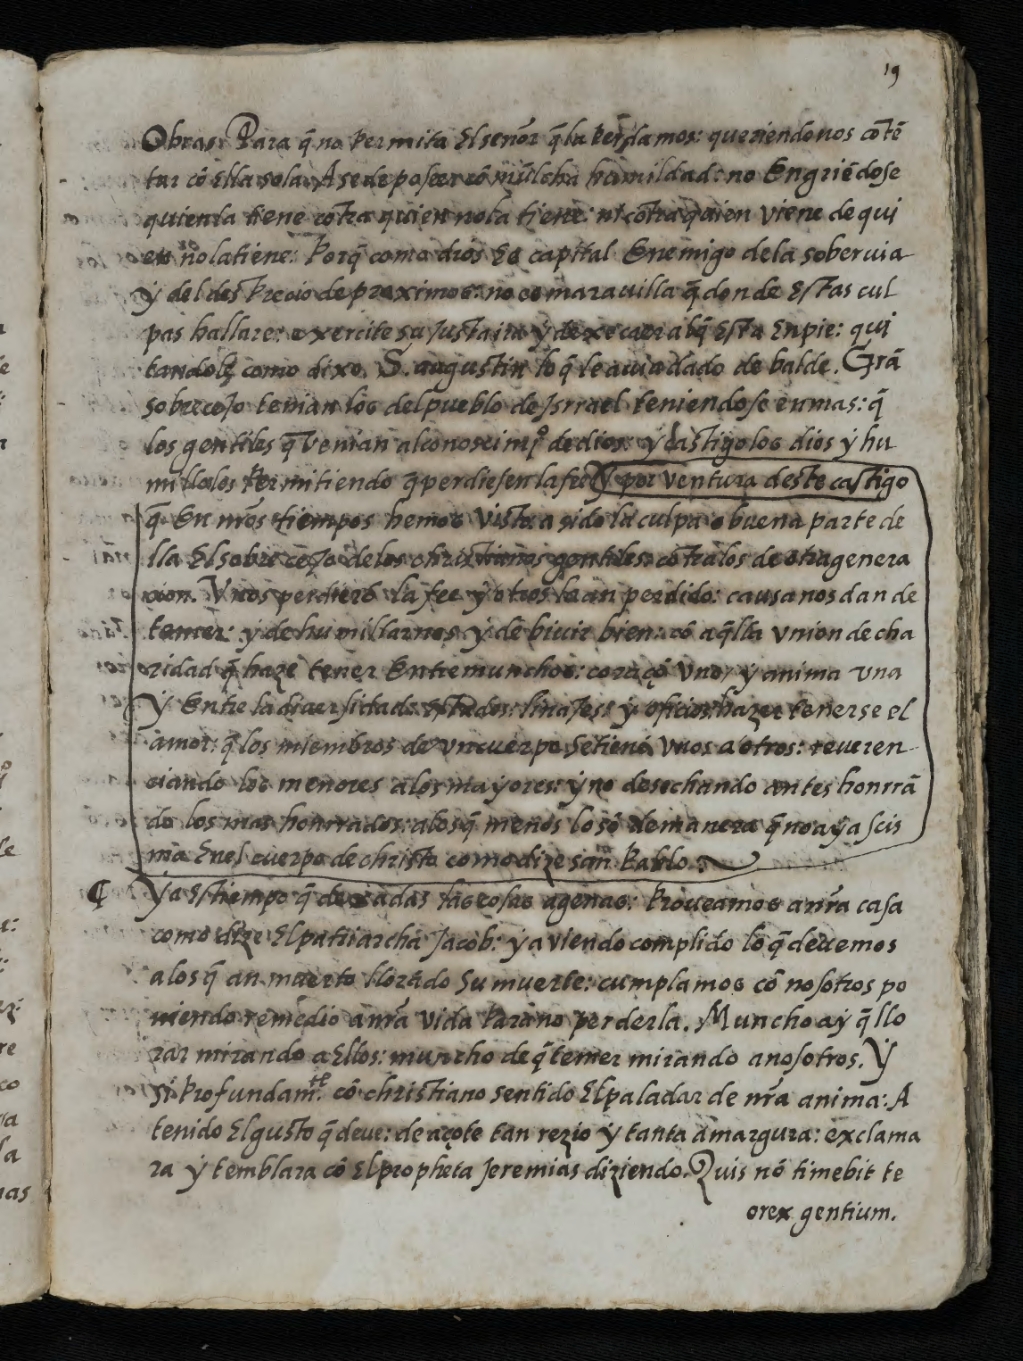 19
Obras. Para q̃ no permita El señor q̃ la perdamos: queriendonos cõtẽ
tar cõ Ella sola. A se de poseer cõ muncha humildad: no Engriẽdose
quien la tiene cõtra quien no la tiene: ni cõtra quien viene de qui
en no la tiene: Porq̃ como dios Es capital Enemigo dela sobervia
ÿ del desprecio de proximos: no es maravilla q̃ donde Estas cul
pas hallare: exercite su justicia ÿ dexe caer al q̃ Esta En pie: qui
tandole como dixo. S. augustin lo q̃ le avia dado de balde. Grã
sobrecejo tenian los del pueblo de jsrrael teniendose en mas: q̃
los gentiles q̃ venian al conoscimj.º de dios: ÿ castigolos dios ÿ hu
millolos permitiendo q̃ perdiesen la fee ÿ por ventura deste castigo
q̃ En nr̃os tiempos hemos visto a sido la culpa o buena parte de
lla El sobre cejo delos christianos gentiles: cõtra los de otra genera
cion. Vnos perdierõ la fee ÿ otros la an perdido: causa nos dan de
temer: ÿ de humillarnos ÿ de biuir bien: cõ aq̃lla vnion de cha
ridad q̃ haze tener Entre munchos: coraçõ vno, ÿ anima vna
Ÿ Entre la diversidad de Estados: linajes: ÿ oficios: hazer tenerse el
amor: q̃ los miembros de vn cuerpo se tienẽ vnos a otros: reveren
ciando los menores a los mayores: ÿ no desechando antes honrrã
do los mas honrrados: a los q̃ menos lo sõ de manera q̃ no aÿa scis
ma Enel cuerpo de christo como dize san Pablo.
¶ Ÿa Es tiempo q̃ dexadas las cosas agenas: Proveamos a nr̃a casa
como dize El patriarcha Jacob: ÿ aviendo complido lo q̃ devemos
a los q̃ an muerto llorãdo su muerte: cumplamos cõ nosotros po
niendo remedio a nr̃a vida para no perderla. Muncho aÿ q̃ llo
rar mirando a Ellos: muncho de q̃ temer mirando a nosotros. Ÿ
si profundam.te cõ christiano sentido El paladar de nr̃a anima: A
tenido El gusto q̃ deve: de açote tan rezio ÿ tanta amargura: exclama
ra ÿ temblara cõ El propheta Jeremias diziendo. Quis nõ timebit te
o rex gentium.